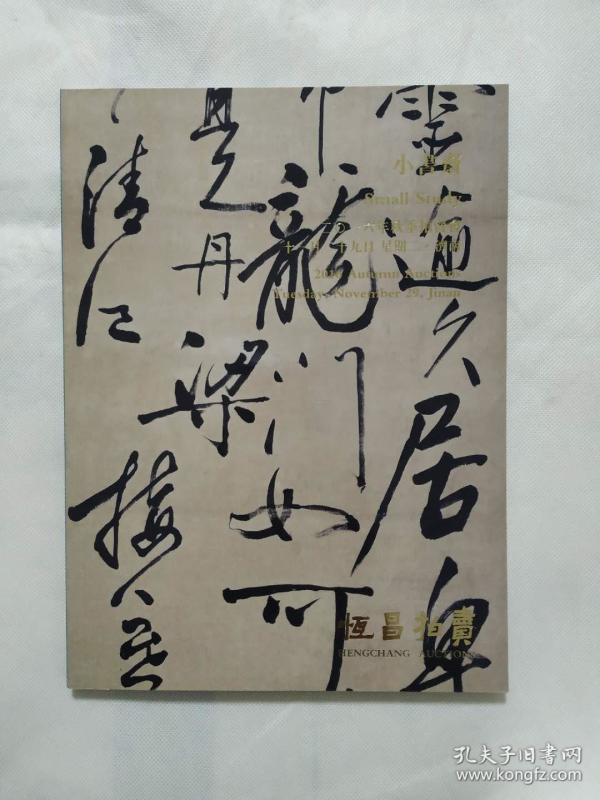 靈通久居卑
龍門如可
是丹梁
清江
接
小書齋
Small Study
二〇一六年秋季拍賣會
十一月二十九日 星期二·濟南
2016 Autumn Auctions
Tuesday, November 29, Jinan
恆昌拍賣
HENGCHANG AUCTIONS
孔夫子旧书网
www.kongfz.com